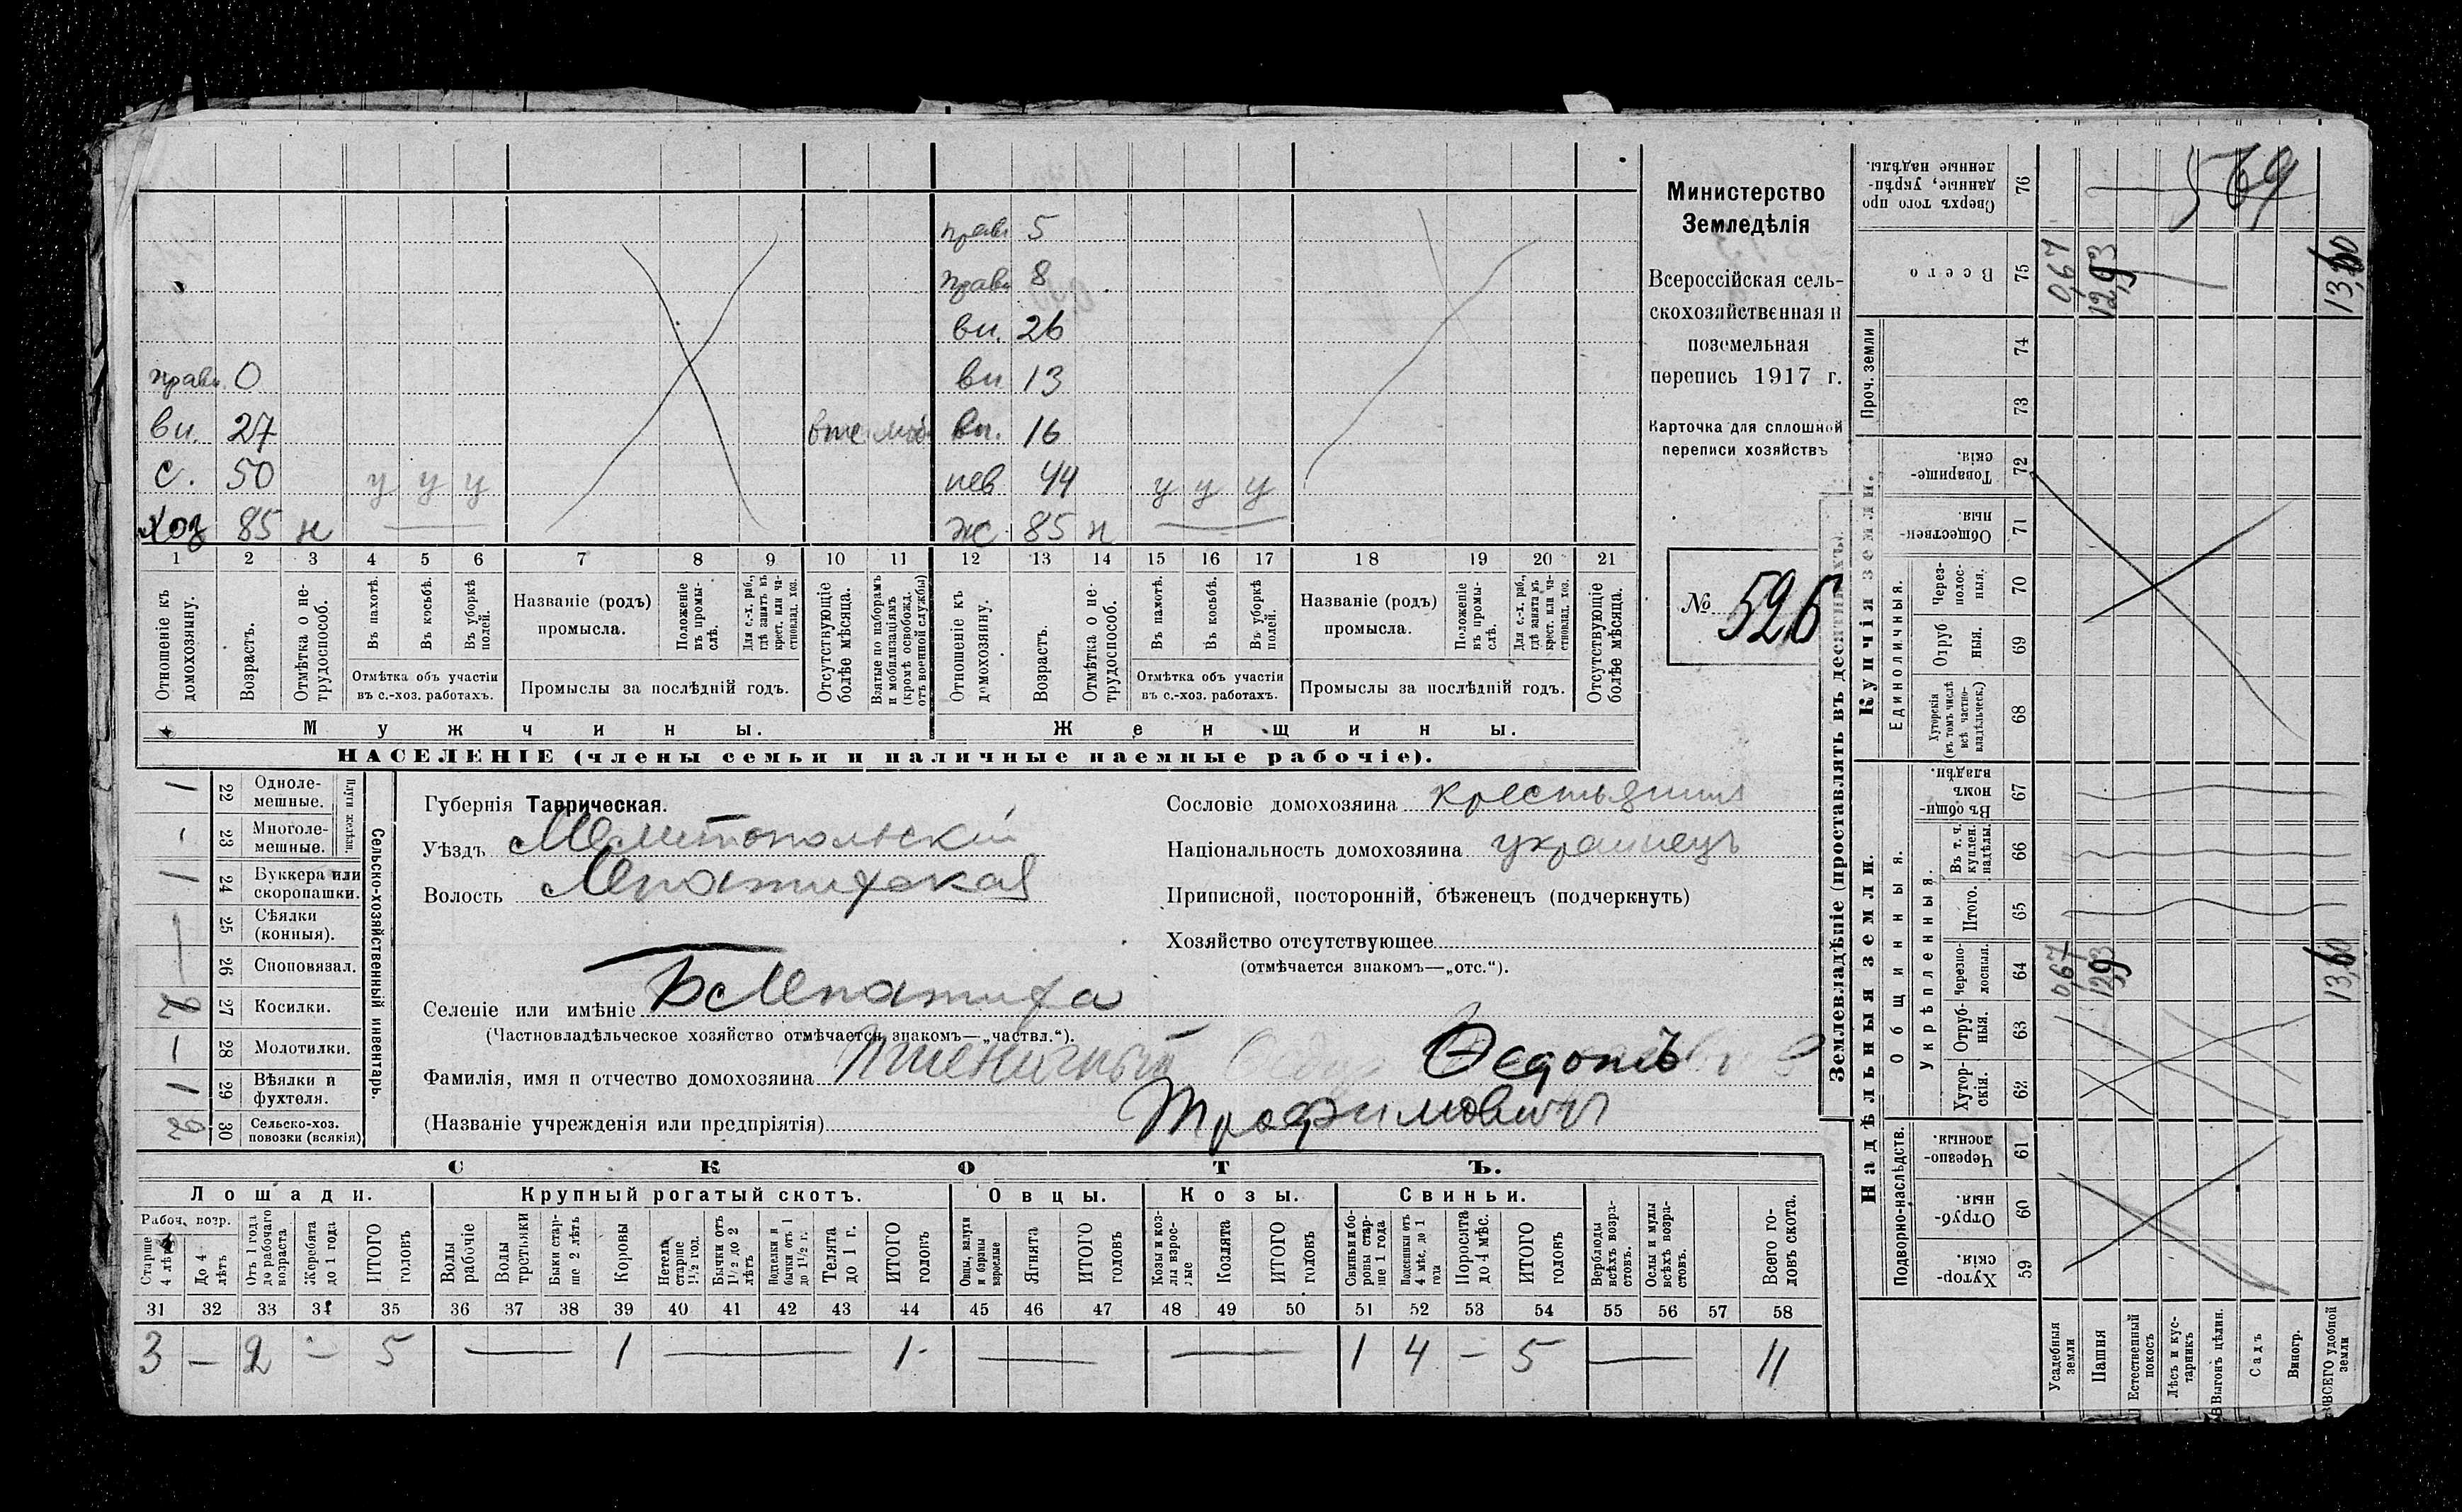 прав. 5
прав. 8
вн. 26
прав. 0 вн. 13
вн. 27 вте моб. вн. 16
с. 50 у у у нев 44 у у у
хоз 85 н — ж 85 н —
1 2 3 4 5 6 7 8 9 10 11 12 13 14 15 16 17 18 19 20 21
Отношеніе къ домохозяину.
Возрастъ.
Отмѣтка о нетрудоспособ.
Въ пахотѣ.
Въ косьбѣ.
Въ уборкѣ полей.
Отмѣтка объ участіи
въ с.-хоз. работахъ.
Названіе (родъ)
промысла.
Положеніе въ промыслѣ.
Для с.-х. раб., гдѣ занятъ въ крест. или частновлад. хоз.
Промыслы за послѣдній годъ.
Отсутствующіе болѣе мѣсяца.
Взятые по наборамъ и мобилизаціямъ (кромѣ освобожд. отъ военной службы)
Отношеніе къ домохозяину.
Возрастъ.
Отмѣтка о нетрудоспособ.
Въ пахотѣ.
Въ косьбѣ.
Въ уборкѣ полей.
Отмѣтка объ участіи
въ с.-хоз. работахъ.
Названіе (родъ)
промысла.
Положеніе въ промыслѣ.
Для с.-х. раб., гдѣ занята въ крест. или частновлад. хоз.
Промыслы за послѣдній годъ.
Отсутствующіе болѣе мѣсяца.
Мужчины. Женщины.
НАСЕЛЕНІЕ (члены семьи и наличные наемные рабочіе).
Министерство
Земледѣлія
Всероссійская сель-
скохозяйственная и
поземельная
перепись 1917 г.
Карточка для сплошной
переписи хозяйствъ
№ 526
1 22 Одноле-
мешные.
- 23 Многоле-
мешные.
Плуги желѣзн.
1 24 Буккера или
скоропашки.
25 Сѣялки
(конныя).
26 Сноповязал.
27 Косилки.
— 28 Молотилки.
1 29 Вѣялки и
фухтеля.
30 Сельско-хоз.
повозки (всякія)
Сельско-хозяйственный инвентарь.
Губернія Таврическая.
Уѣздъ Мелитопольскій
Волость Лепатихская
Селеніе или имѣніе Б Лепатиха
(Частновладѣльческое хозяйство отмѣчается знакомъ—„частвл.“).
Фамилія, имя и отчество домохозяина Пшеничный Ѳедотъ
(Названіе учрежденія или предпріятія) Трофимовичъ
Сословіе домохозяина крестьянинъ
Національность домохозяина украинецъ
Приписной, посторонній, бѣженецъ (подчеркнуть)
Хозяйство отсутствующее
(отмѣчается знакомъ—„отс.“).
СКОТЪ.
Лошади. Крупный рогатый скотъ. Овцы. Козы. Свиньи.
Рабоч. возр.
Старше 4 лѣтъ
До 4 лѣтъ
Отъ 1 года до рабочаго возраста
Жеребята до 1 года
ИТОГО головъ
Волы рабочіе
Волы третьяки
Быки старше 2 лѣтъ
Коровы
Нетели старше 1½ год.
Бычки отъ 1½ до 2 лѣтъ
Подтелки и бычки отъ 1 до 1½ г.
Телята до 1 г.
ИТОГО головъ
Овцы, валухи и бараны взрослые
Ягнята
ИТОГО головъ
Козы и козлы взрослые
Козлята
ИТОГО головъ
Свиньи и боровы старше 1 года
Подсвинки отъ 4 мѣс. до 1 года
Поросята до 4 мѣс.
ИТОГО головъ
Верблюды всѣхъ возрастовъ.
Ослы и мулы всѣхъ возрастовъ.
Всего головъ скота.
31 32 33 34 35 36 37 38 39 40 41 42 43 44 45 46 47 48 49 50 51 52 53 54 55 56 57 58
3 — 2 — 5 — 1 — 1 — — 1 4 — 5 — 11
Землевладѣніе (проставлять въ десятинахъ).
Надѣльныя земли. Купчія земли. Проч. земли
Подворно-наслѣдств.
Общинныя.
Укрѣпленныя.
Единоличныя.
59 Хутор-
скія.
60 Отруб-
ныя.
61 Черезпо-
лосныя.
62 Хутор-
скія.
63 Отруб-
ныя.
64 Черезпо-
лосныя. 0,67 12,93 13,60
65 Итого.
66 Въ т. ч.
куплен.
надѣлы.
67 Въ общин-
номъ
владѣн.
68 Хуторскія
(въ томъ числѣ
всѣ частно-
владѣльческ.)
69 Отруб
ныя.
70 Через-
полос-
ныя.
71 Обществен-
ныя.
72 Товарище-
скія.
73
74
75 Всего 0,67 12,93 13,60
76 Сверхъ того про
данные, укрѣп-
ленные надѣлы. 569
Усадебныя земли
Пашня
Естественный покосъ
Лѣсъ и кустарникъ
Выгонъ цѣлин.
Садъ
Виногр.
ВСЕГО удобной земли